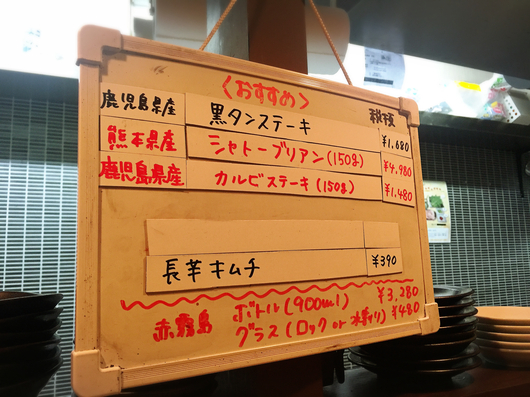 〈おすすめ〉
税抜
鹿児島県産 黒タンステーキ ¥1,680
熊本県産 シャトーブリアン(150g) ¥4,980
鹿児島県産 カルビステーキ(150g) ¥1,480
長芋キムチ ¥390
赤霧島 ボトル(900ml) ¥3,280
グラス(ロック or 水割り) ¥480